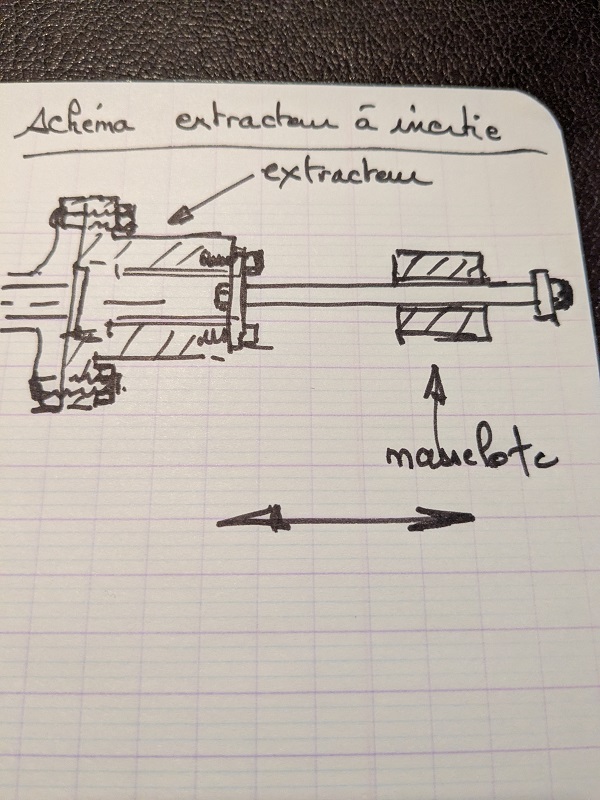 Schéma extracteur à inertie
extracteur
masselotte